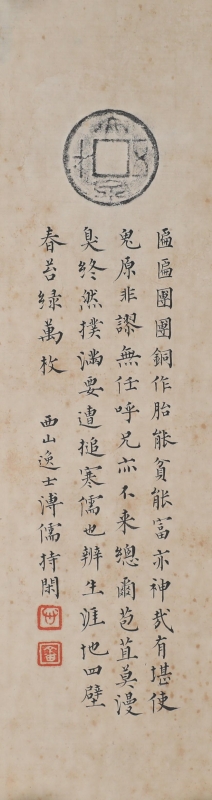 大泉五十
匾匾團團銅作胎能貧能富亦神哉有堪使
鬼原非謬無任呼兄亦不來總爾苞苴莫漫
臭終然撲滿要遭搥寒儒也辨生涯地四壁
春苔綠萬枚
西山逸士溥儒持閑